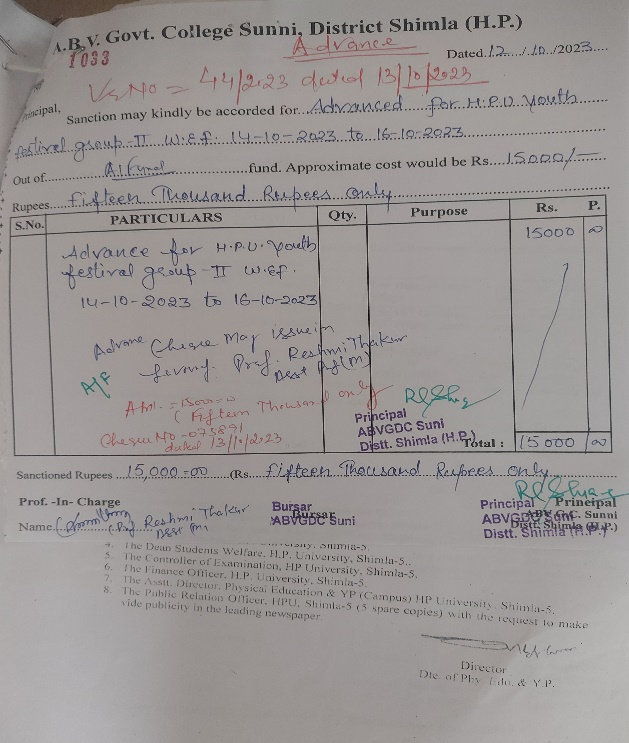 A.B.V. Govt. College Sunni, District Shimla (H.P.)
1033
Advance
Dated.12../.10../2023....
Vr No = 44/2023 dated 13/10/2023
Principal,
Sanction may kindly be accorded for..Advanced....for H.P.U. Youth
festival group-II W.e.f. 14-10-2023 to 16-10-2023
Out of........A/Fund........fund. Approximate cost would be Rs...15000/-
Rupees...fifteen Thousand Rupees only
S.No. PARTICULARS Qty. Purpose Rs. P.
Advance for H.P.U. Youth 15000 00
festival group-II W.e.f.
14-10-2023 to 16-10-2023
Advance Cheque May issue in
favoring Prof. Reshmi Thakur
A/F
Amt.-=15000=00
(Fifteen Thousand only
Principal
ABVGDC Suni
Cheque No-075891
Distt. Shimla (H.P.)
Total : 15000 00
Sanctioned Rupees...15,000=00....(Rs...fifteen Thousand Rupees only
Prof. -In- Charge
Bursar
Bursar
ABVGDC Suni
Principal
Principal
ABVGDC Suni
ABV G.C. Sunni
Distt. Shimla (H.P.)
Distt. Shimla (H.P.)
Name. Reshmi Thakur
4. The Dean Students Welfare, H.P. University, Shimla-5..
5. The Controller of Examination, HP University, Shimla-5.
6. The Finance Officer, H.P. University, Shimla-5.
7. The Asstt. Director, Physical Education & YP (Campus) HP University, Shimla-5.
8. The Public Relation Officer, HPU, Shimla-5 (5 spare copies) with the request to make
vide publicity in the leading newspaper.
Director
Dte. of Phy. Edu. & Y.P.